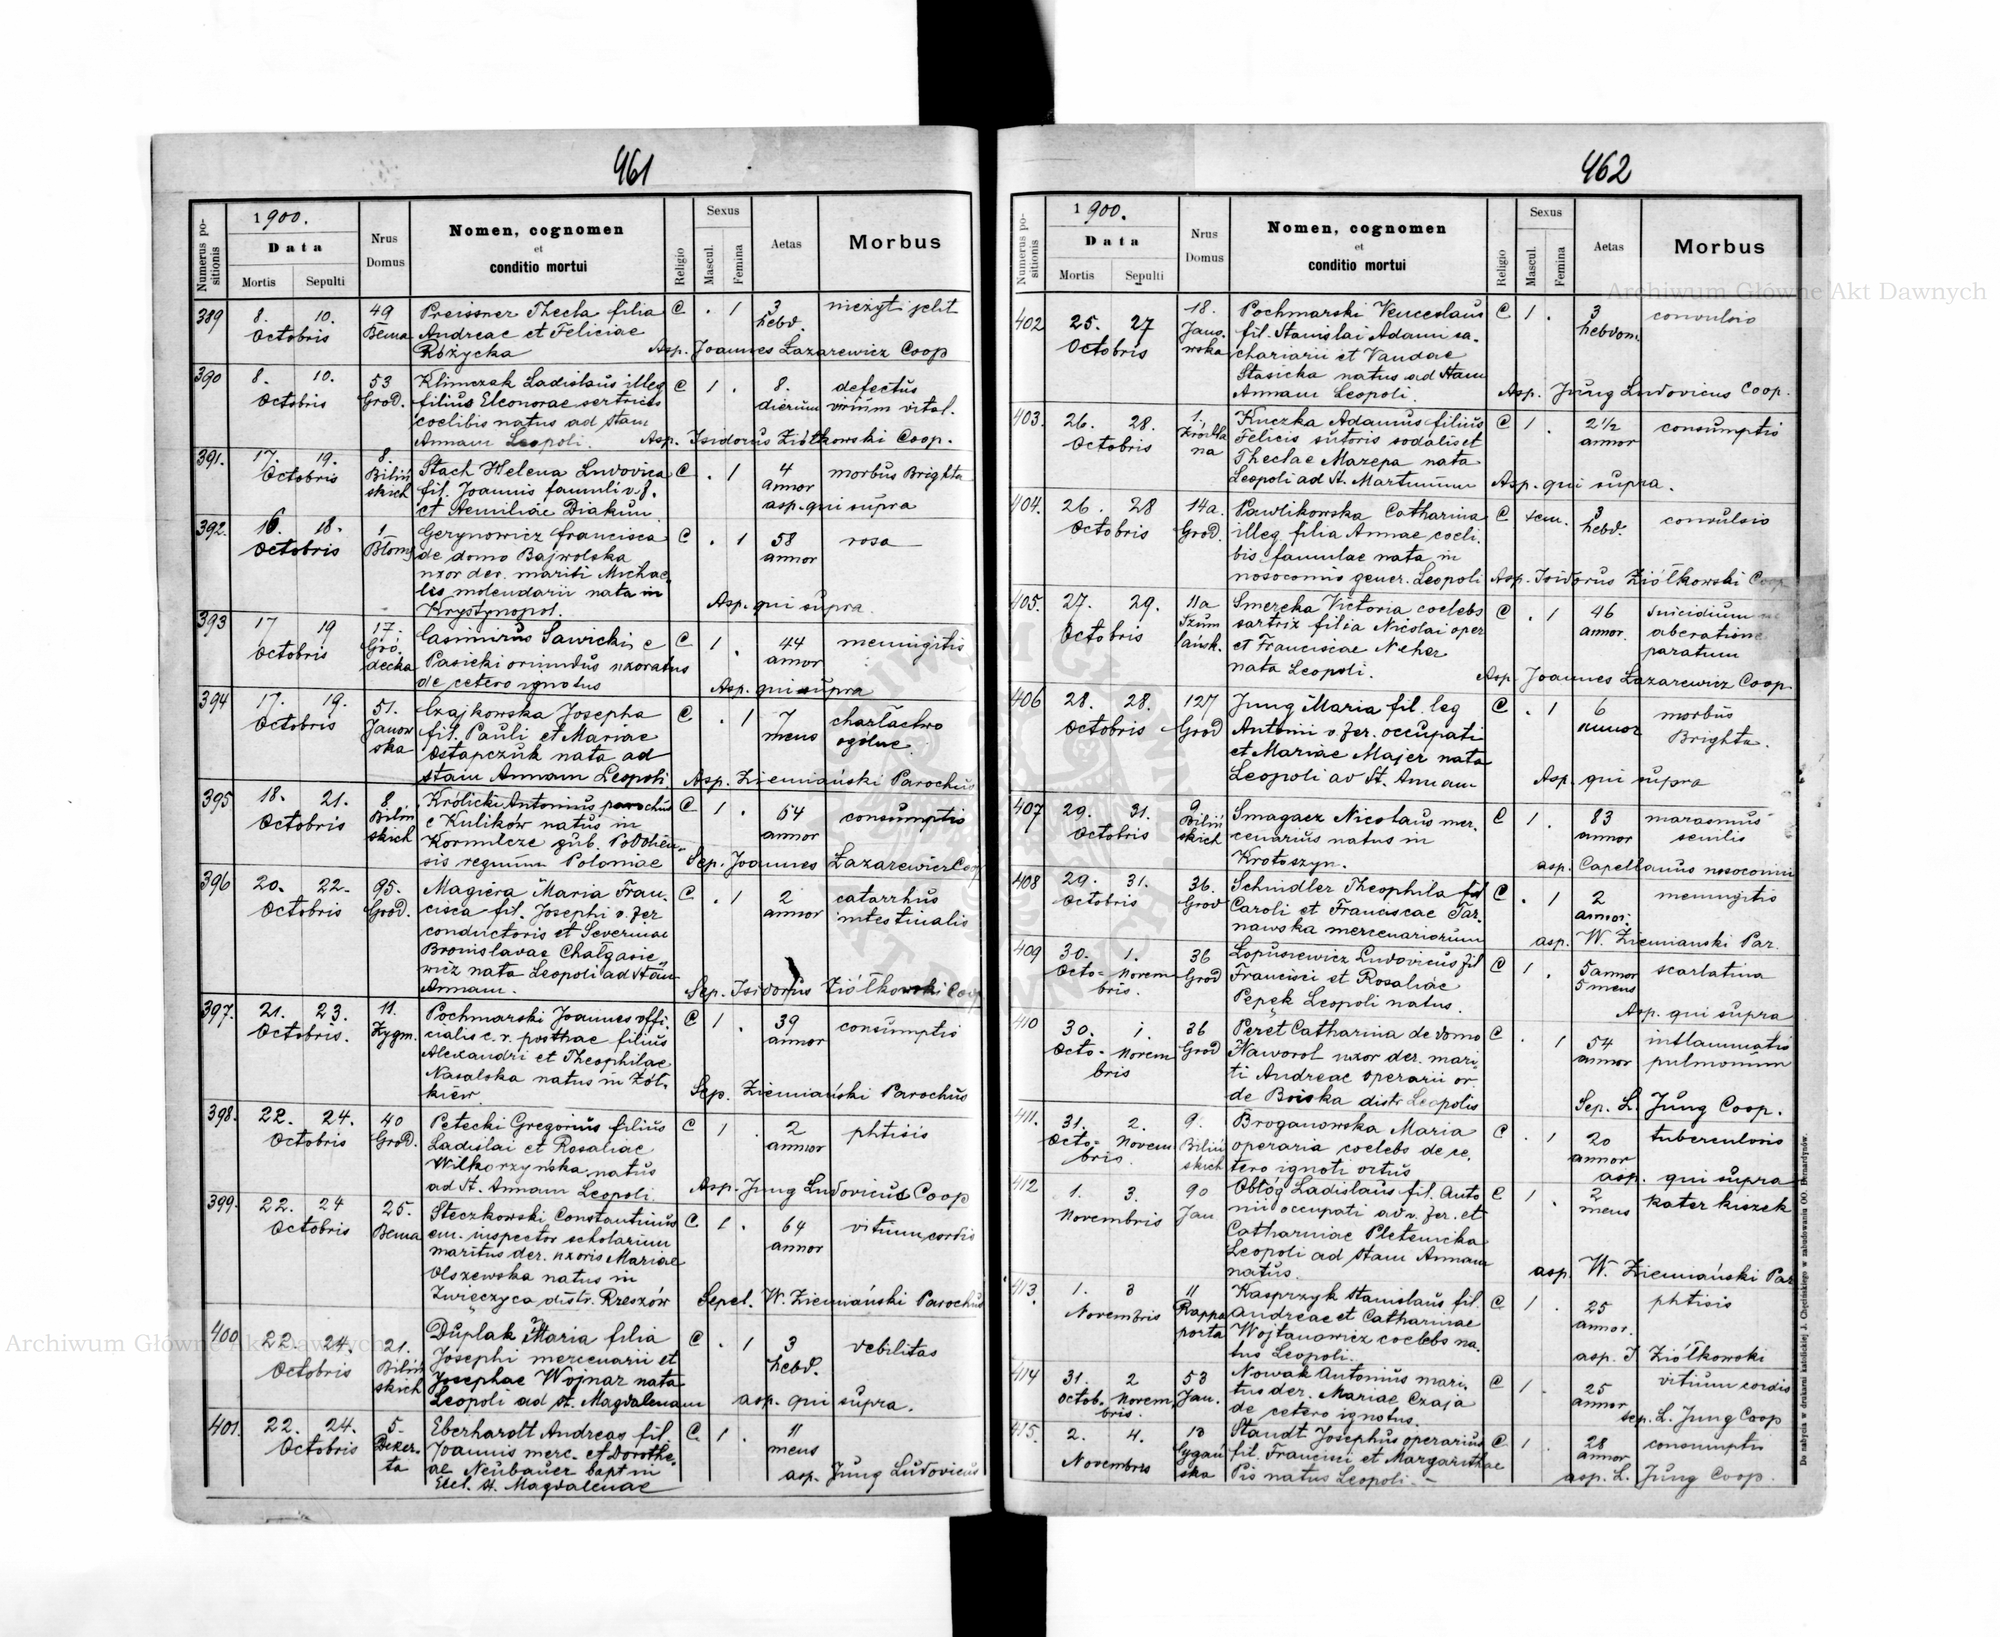 461
Numerus positionis
1900.
Data
Mortis
Sepulti
Nrus Domus
Nomen, cognomen
et
conditio mortui
Religio
Sexus
Mascul.
Femina
Aetas
Morbus
389
8. 10.
Octobris
49
Bema
Preissner Thecla filia
Andreae et Feliciae
Różycka
C . 1
3
hebd.
nieżyt jelit
Asp. Joannes Łazarewicz Coop
390
8. 10.
Octobris
53
Grod.
Klimczak Ladislaus illeg
filius Eleonorae sertricis
coelibis natus ad Stam
Annam Leopoli.
C 1 .
8.
dierum
defectus
virium vital.
Asp. Isidorus Ziółkowski Coop.
391.
17. 19.
Octobris
8.
Biliń
skich
Stach Helena Ludovica
fil. Joannis famuli v. f.
et Aemiliae Diakun
C . 1
4
annor
morbus Brighta
asp. qui supra
392.
16. 18.
Octobris
1.
Gerynowicz Francisca
de domo Bajwolska
uxor der. mariti Michae-
lis molendarii nata in
Krystynopol.
C . 1
58
annor
rosa
Asp. qui supra.
393
17 19
Octobris
17.
Gró
decka
Casimirus Sawicki e
Pasicki oriundus uxoratus
de cetero ignotus
C 1 .
44
annor
meningitis
Asp. qui supra
394
17. 19.
Octobris
51.
Janow
ska
Czajkowska Josepha
fil. Pauli et Mariae
Ostapczuk nata ad
Stam Annam Leopoli
C . 1
7
mens
charłactwo
ogólne
Asp. Ziemiański Parochus
395
18. 21.
Octobris
8.
Biliń
skich
Królicki Antonius parochus
e Kulików natus in
gub. Podolien-
sis regnum Poloniae
C 1 .
64
annor
consumptio
Sep. Joannes Łazarewicz Coop
396
20. 22.
Octobris
95.
Grod.
Magiera Maria Fran-
cisca fil. Josephi v. fer
conductoris et Severinae
Bronislavae Chalgasie-
wicz nata Leopoli ad Stam
Annam.
C . 1
2
annor
catarrhus
intestinalis
Sep. Isidorus Ziółkowski Coop
397.
21. 23.
Octobris.
11.
Zygm.
Pochmarski Joannes offi-
cialis c. r. posthae filius
Alexandri et Theophilae
Nasalska natus in Żół-
kiew.
C 1 .
39
annor
consumptio
Sep. Ziemiański Parochus
398.
22. 24.
Octobris
40
Grod.
Petecki Gregorius filius
Ladislai et Rosaliae
Wilkorzyńska natus
ad St. Annam Leopoli.
C 1 .
2
annor
phtisis
Asp. Jung Ludovicus Coop
399.
22. 24
Octobris
25.
Bema
Steczkowski Constantinus
em. inspector scholarium
maritus der. uxoris Mariae
Olszewska natus in
Zwięczyca distr. Rzeszów
C 1 .
64
annor
vitium cordis
Sepel. W. Ziemiański Parochus
400
22. 24.
Octobris
21.
Biliń
skich
Duplak Maria filia
Josephi mercenarii et
Josephae Wojnar nata
Leopoli ad St. Magdalenam
C . 1
3
hebd.
debilitas
asp. qui supra.
401.
22. 24.
Octobris
5.
Eberhardt Andreas fil.
Joannis merc. et Dorothe-
ae Neubauer bapt in
Eccl. St. Magdalenae
C. 1 .
11
mens
asp. Jung Ludovicus
462
Numerus positionis
1900.
Data
Mortis
Sepulti
Nrus Domus
Nomen, cognomen
et
conditio mortui
Religio
Sexus
Mascul.
Femina
Aetas
Morbus
402
25. 27
Octobris
18.
Jano-
wska
Pochmarski Venceslaus
fil. Stanislai Adami sa-
chariarii et Vandae
Stasicka natus ad Stam
Annam Leopoli.
C 1 .
3
hebdom.
convulsio
Asp. Jung Ludovicus Coop.
403.
26. 28.
Octobris
1.
Źródla
na
Kuczka Adamus filius
Felicis sutoris sodalis et
Theclae Mazepa nata
Leopoli ad St. Martinum
C 1 .
2½
annor
consumptio
Asp. qui supra.
404.
26. 28
Octobris
14a.
Grod.
Pawlikowska Catharina
illeg. filia Annae coeli-
bis famulae nata in
nosocomio gener. Leopoli
C fem.
3
hebd.
convulsio
Asp. Isidorus Ziółkowski Coop
405.
27. 29.
Octobris
11a
Szum
lańsk.
Smereka Victoria coelebs
sartrix filia Nicolai oper
et Franciscae Neher
nata Leopoli.
C . 1
46
annor.
suicidium
aberatione
paratum
Asp Joannes Łazarewicz Coop.
406
28. 28.
Octobris
127
Grod
Jung Maria fil. leg
Antonii v. fer. occupati
et Mariae Majer nata
Leopoli ad St. Annam
C . 1
6
annor
morbus
Brighta.
Asp. qui supra
407
29. 31.
Octobris
9
Biliń
skich
Smagacz Nicolaus mer-
cenarius natus in
Krotoszyn.
C 1 .
83
annor
marasmus
senilis
asp. Capellanus nosocomii
408
29. 31.
Octobris
36.
Grod
Schindler Theophila fil
Caroli et Franciscae Tar-
nawska mercenariorum
C . 1
2
annor.
meningitis
asp. W. Ziemianski Par.
409
30. 1.
Octo- Novem
bris.
36
Grod
Łopusiewicz Ludovicus fil
Francisci et Rosaliae
Pepek Leopoli natus.
C 1 .
5 annor
5 mens
scarlatina
Asp. qui supra
410
30. 1.
Octo- Novem
bris
36
Grod
Peret Catharina de domo
Naworol uxor der. mari-
ti Andreae operarii or.
de Boiska distr Leopolis
C . 1
54
annor
inflammatio
pulmonum
Sep. L. Jung Coop.
411.
31. 2.
Octo- Novem
bris.
9.
Biliń
skich
Broganowska Maria
operaria coelebs de ce-
tero ignoti ortus
C . 1
20
annor
tuberculosis
asp. qui supra
412
1. 3.
Novembris
90
Jan.
Obłóg Ladislaus fil. Anto
nii occupati ad v. fer. et
Catharinae Pletenicka
Leopoli ad Stam Annam
natus.
C 1 .
2
mens
kater kiszek
asp. W. Ziemiański Par
413.
1. 3
Novembris
11
Rappa
porta
Kasprzyk Stanislaus fil.
Andreae et Catharinae
Wojtanowicz coelebs na-
tus Leopoli.
C 1 .
25
annor.
phtisis
asp. I Ziółkowski
414
31. 2
Octob. Novem.
bris.
53
Jan.
Nowak Antonius mari-
tus der. Mariae Czaja
de cetero ignotus.
C 1 .
25
annor
vitium cordis
sep. L. Jung Coop
415.
2. 4.
Novembris
13
Cygań
ska
Staudt Josephus operarius
fil. Francisci et Margarithae
Pis natus Leopoli -
C 1 .
28
annor
consumptio
asp. L. Jung Coop.
Do nabycia w drukarni katolickiej J. Chęcińskiego w zabudowaniu OO. Bernardynów.
Archiwum Główne Akt Dawnych
Archiwum Główne Akt Dawnych